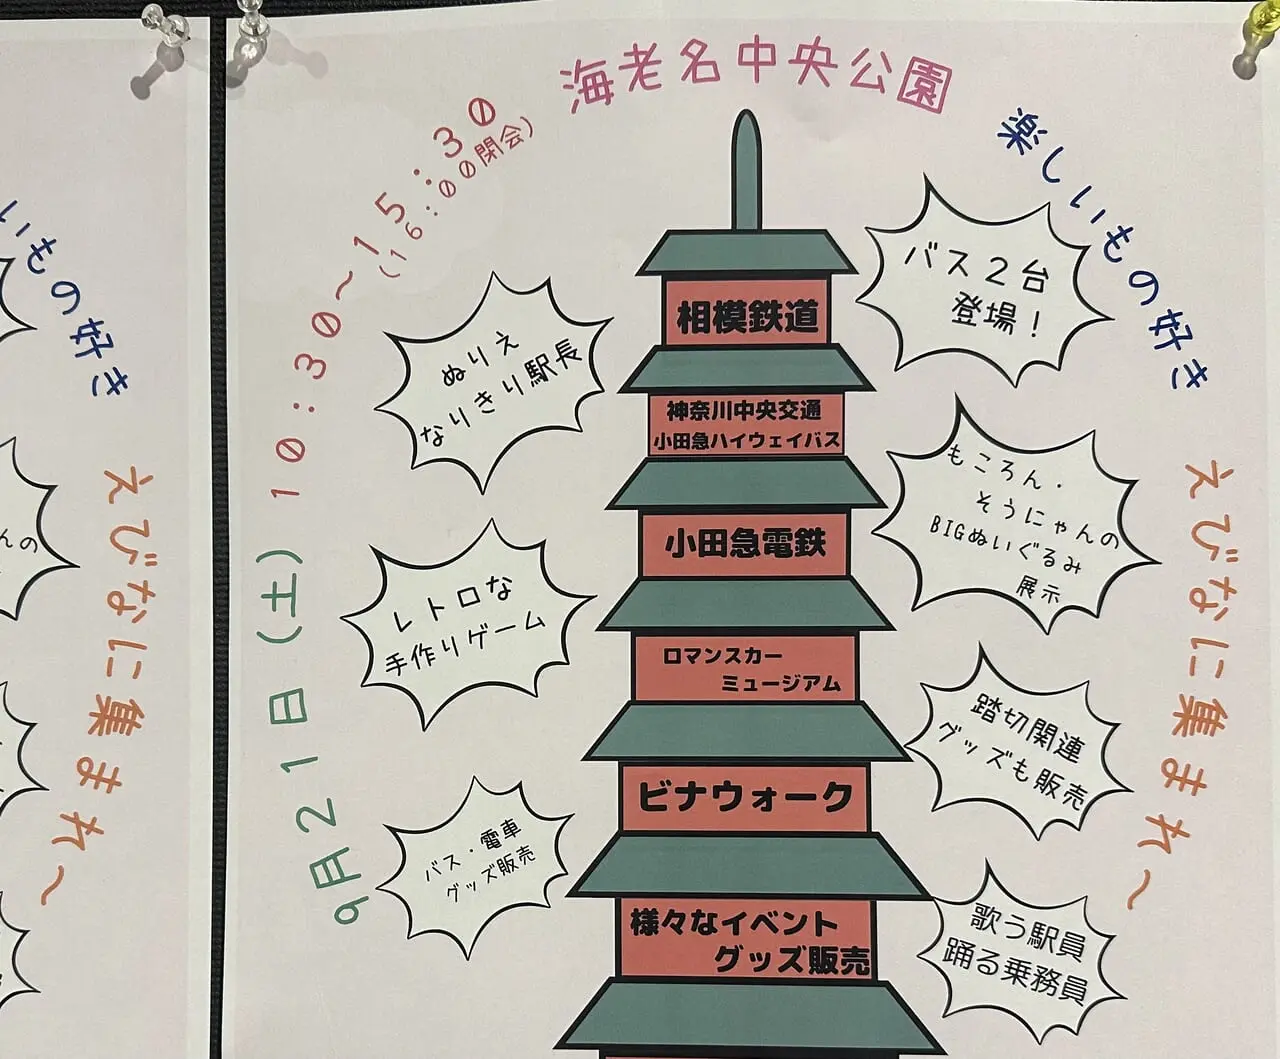 いもの好き
えびなに集まれ〜
んの
海老名中央公園
9月21日(土)10:30〜15:30
(16:00閉会)
楽しいもの好き
えびなに集まれ〜
相模鉄道
神奈川中央交通
小田急ハイウェイバス
小田急電鉄
ロマンスカー
ミュージアム
ビナウォーク
様々なイベント
グッズ販売
ぬりえ
なりきり駅長
レトロな
手作りゲーム
バス・電車
グッズ販売
バス2台
登場!
もころん・
そうにゃんの
BIGぬいぐるみ
展示
踏切関連
グッズも販売
歌う駅員
踊る乗務員